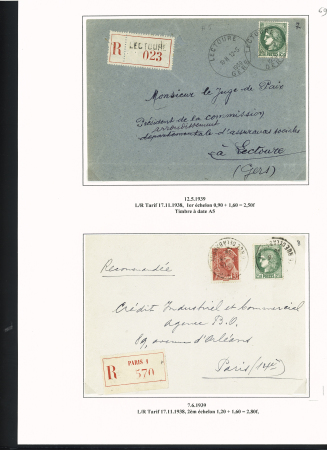 69
R
LECTOURE
023
LECTOURE
GERS
Monsieur le Juge de Paix
Président de la commission
arrondissement
départementale d'assurances sociales
à Lectoure
(Gers)
12.5.1939
L/R Tarif 17.11.1938, 1er échelon 0,90 + 1,60 = 2,50f
Timbre à date A5
Recommandée
Crédit Industriel et Commercial
Agence B.O.
89, avenue d'Orléans
Paris (14e)
R
PARIS 1
570
7.6.1939
L/R Tarif 17.11.1938, 2ém échelon 1,20 + 1,60 = 2,80f,